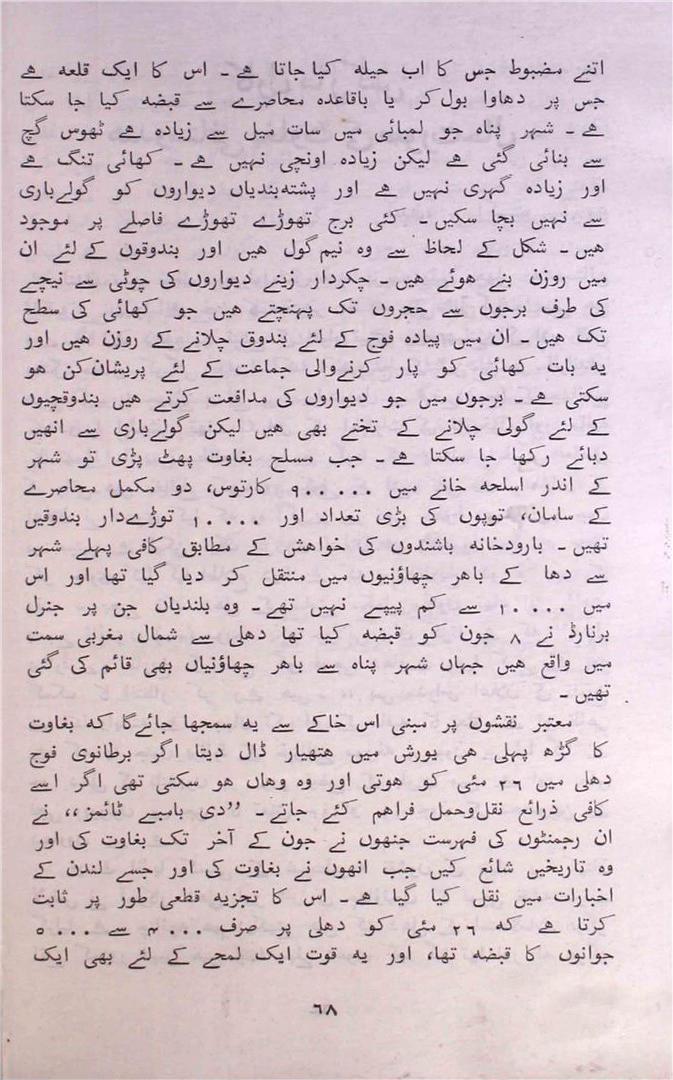 اتنے مضبوط جس کا اب حیلہ کیا جاتا ہے۔ اس کا ایک قلعہ ہے
جس پر دھاوا بول کر یا باقاعدہ محاصرے سے قبضہ کیا جا سکتا
ہے۔ شہر پناہ جو لمبائی میں سات میل سے زیادہ ہے ٹھوس گچ
سے بنائی گئی ہے لیکن زیادہ اونچی نہیں ہے۔ کھائی تنگ ہے
اور زیادہ گہری نہیں ہے اور پشتہ‌بندیاں دیواروں کو گولےباری
سے نہیں بچا سکیں۔ کئی برج تھوڑے تھوڑے فاصلے پر موجود
ہیں۔ شکل کے لحاظ سے وہ نیم گول ہیں اور بندوقوں کے لئے ان
میں روزن بنے ہوئے ہیں۔ چکردار زینے دیواروں کی چوٹی سے نیچے
کی طرف برجوں سے حجروں تک پہنچتے ہیں جو کھائی کی سطح
تک ہیں۔ ان میں پیادہ فوج کے لئے بندوق چلانے کے روزن ہیں اور
یہ بات کھائی کو پار کرنےوالی جماعت کے لئے پریشان‌کن ہو
سکتی ہے۔ برجوں میں جو دیواروں کی مدافعت کرتے ہیں بندوقچیوں
کے لئے گولی چلانے کے تختے بھی ہیں لیکن گولےباری سے انھیں
دبائے رکھا جا سکتا ہے۔ جب مسلح بغاوت پھٹ پڑی تو شہر
کے اندر اسلحہ خانے میں ۹۰۰۰۰۰ کارتوس، دو مکمل محاصرے
کے سامان، توپوں کی بڑی تعداد اور ۱۰۰۰۰ توڑےدار بندوقیں
تھیں۔ بارودخانہ باشندوں کی خواہش کے مطابق کافی پہلے شہر
سے دھا کے باہر چھاؤنیوں میں منتقل کر دیا گیا تھا اور اس
میں ۱۰۰۰۰ سے کم پیپے نہیں تھے۔ وہ بلندیاں جن پر جنرل
برنارڈ نے ۸ جون کو قبضہ کیا تھا دہلی سے شمال مغربی سمت
میں واقع ہیں جہاں شہر پناہ سے باہر چھاؤنیاں بھی قائم کی گئی
تھیں۔
معتبر نقشوں پر مبنی اس خاکے سے یہ سمجھا جائےگا کہ بغاوت
کا گڑھ پہلی ہی یورش میں ہتھیار ڈال دیتا اگر برطانوی فوج
دہلی میں ۲۶ مئی کو ہوتی اور وہ وہاں ہو سکتی تھی اگر اسے
کافی ذرائع نقل‌وحمل فراہم کئے جاتے۔ ”دی بامبے ٹائمز،، نے
ان رجمنٹوں کی فہرست جنھوں نے جون کے آخر تک بغاوت کی اور
وہ تاریخیں شائع کیں جب انھوں نے بغاوت کی اور جسے لندن کے
اخبارات میں نقل کیا گیا ہے۔ اس کا تجزیہ قطعی طور پر ثابت
کرتا ہے کہ ۲۶ مئی کو دہلی پر صرف ۴۰۰۰ سے ۵۰۰۰
جوانوں کا قبضہ تھا، اور یہ قوت ایک لمحے کے لئے بھی ایک
۶۸